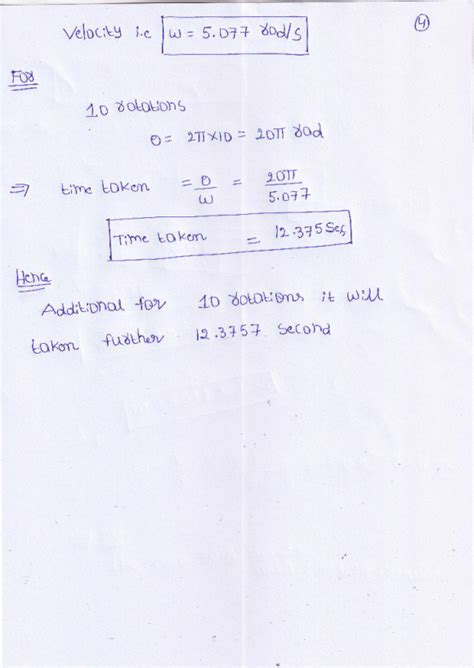 4
Velocity i.e ω = 5.077 rad/s
For
10 rotations
θ = 2π×10 = 20π rad
⇒ time taken = θ/ω = 20π/5.077
Time taken = 12.375 Sec
Hence
Additional for 10 rotations it will
taken further 12.3757 second